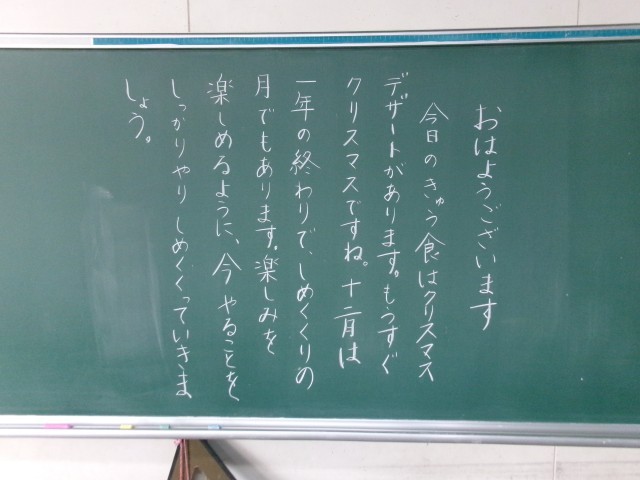 おはようございます
今日のきゅう食はクリスマス
デザートがあります。もうすぐ
クリスマスですね。十二月は
一年の終わりで、しめくくりの
月でもあります。楽しみを
楽しめるように、今やることを
しっかりやりしめくくっていきま
しょう。